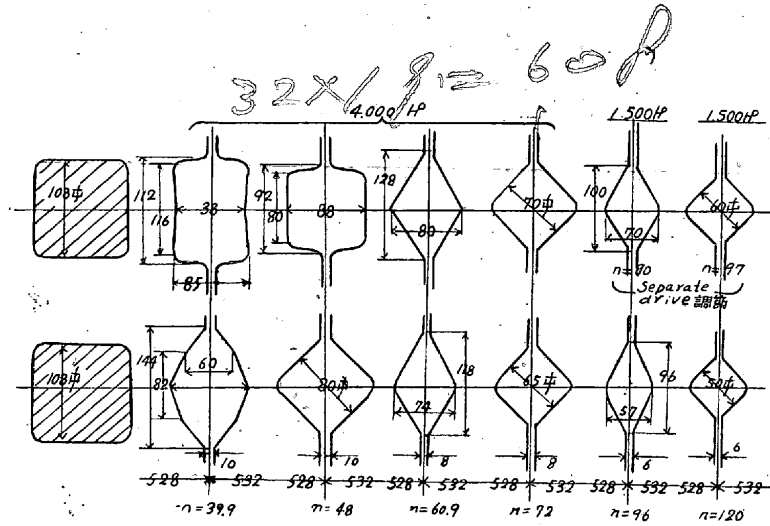 32×19=60
4.000 HP
1.500HP 1.500HP
103中 112 116 38 85 92 80 88 128 80 70中 100 70 60中
n=80 n=97
Separate drive 調節
103中 144 82 60 80中 74 118 65中 57 96 50中
10 10 8 8 6 6
528 532 528 532 528 532 528 532 528 532 528 532
n=39.9 n=48 n=60.9 n=72 n=96 n=120